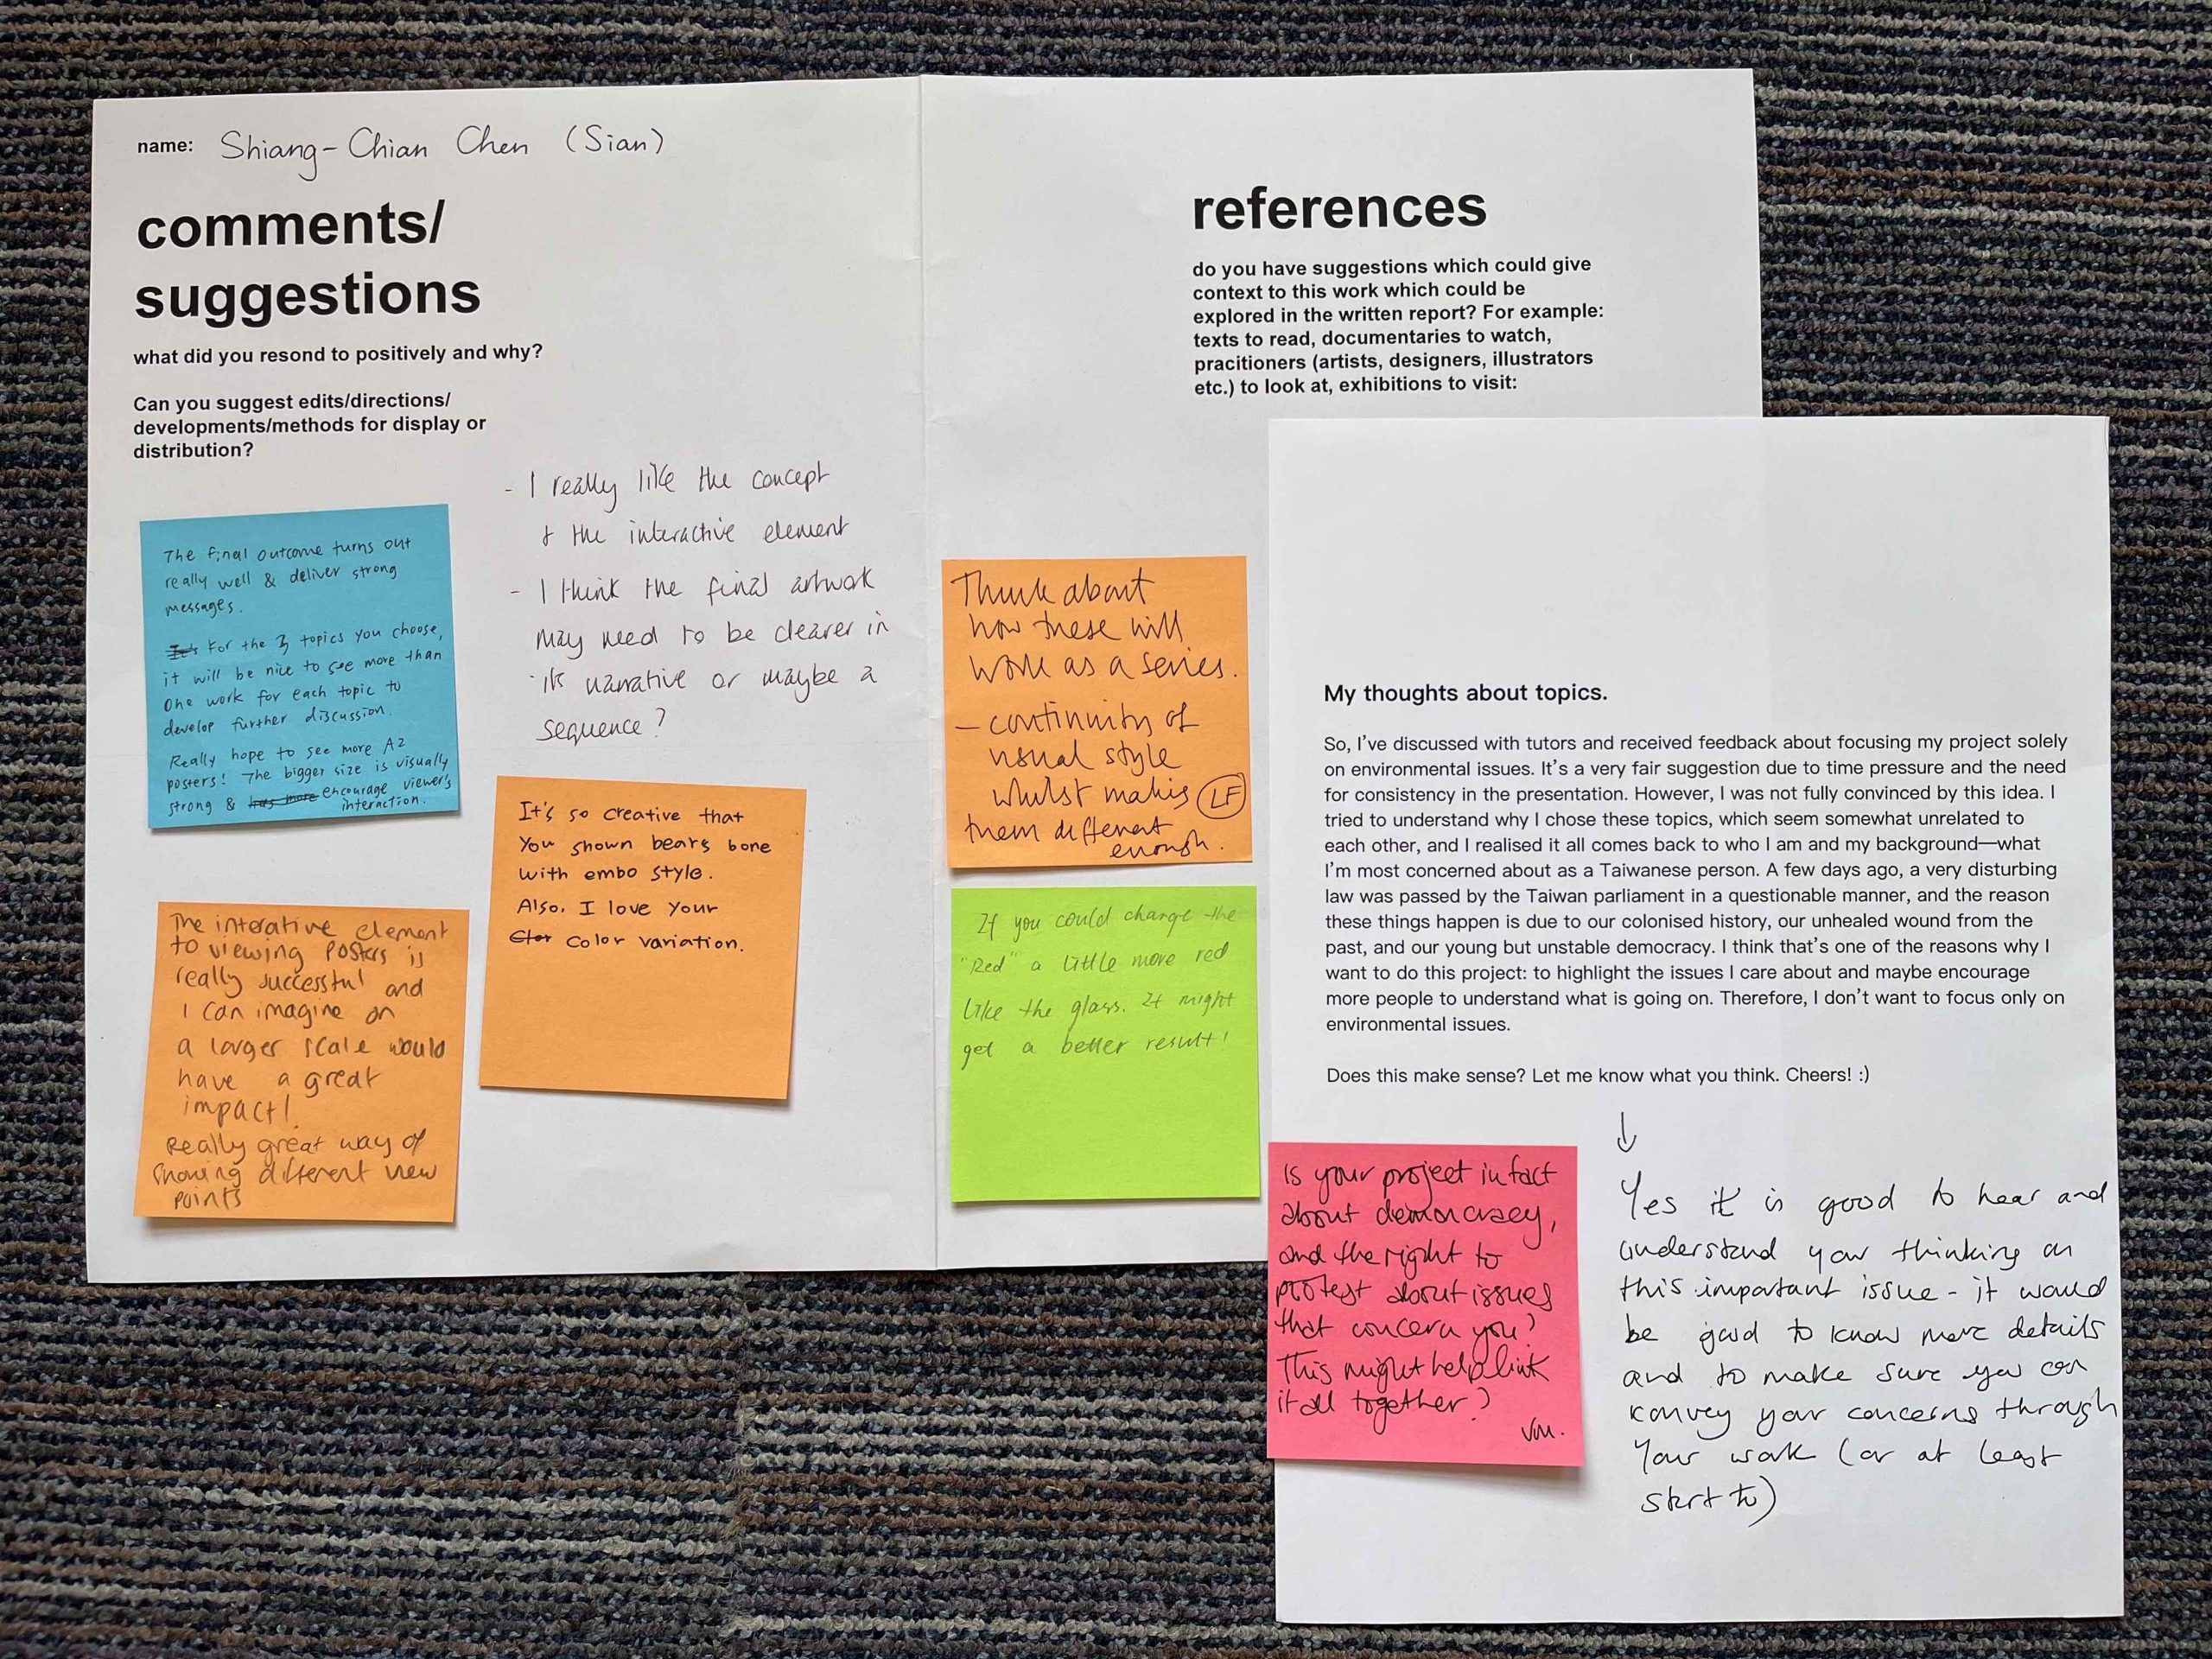 name: Shiang-Chian Chen (Sian)
comments/
suggestions
what did you resond to positively and why?
Can you suggest edits/directions/
developments/methods for display or
distribution?
- I really like the concept
& the interactive element
- I think the final artwork
may need to be clearer in
it's narrative or maybe a
sequence?
The final outcome turns out
really well & deliver strong
messages.
It's For the 3 topics you choose,
it will be nice to see more than
one work for each topic to
develop further discussion.
Really hope to see more A2
posters! The bigger size is visually
strong & has more encourage viewer's
interaction.
It's so creative that
You shown bears bone
with embo style.
Also, I love your
Clor color variation.
The interative element
to viewing posters is
really successful and
I can imagine on
a larger scale would
have a great
impact!
Really great way of
showing different view
points
references
do you have suggestions which could give
context to this work which could be
explored in the written report? For example:
texts to read, documentaries to watch,
pracitioners (artists, designers, illustrators
etc.) to look at, exhibitions to visit:
Think about
how these will
work as a series.
- continuity of
visual style
whilst making LF
them different
enough.
If you could change the
"Red" a little more red
like the glass. It might
get a better result!
My thoughts about topics.
So, I've discussed with tutors and received feedback about focusing my project solely
on environmental issues. It's a very fair suggestion due to time pressure and the need
for consistency in the presentation. However, I was not fully convinced by this idea. I
tried to understand why I chose these topics, which seem somewhat unrelated to
each other, and I realised it all comes back to who I am and my background—what
I'm most concerned about as a Taiwanese person. A few days ago, a very disturbing
law was passed by the Taiwan parliament in a questionable manner, and the reason
these things happen is due to our colonised history, our unhealed wound from the
past, and our young but unstable democracy. I think that's one of the reasons why I
want to do this project: to highlight the issues I care about and maybe encourage
more people to understand what is going on. Therefore, I don't want to focus only on
environmental issues.
Does this make sense? Let me know what you think. Cheers! :)
↓
Yes it is good to hear and
understand your thinking on
this important issue - it would
be good to know more details
and to make sure you can
convey your concerns through
your work (or at least
start to)
Is your project in fact
about democracy,
and the right to
protest about issues
that concern you?
This might help link
it all together?
VM.